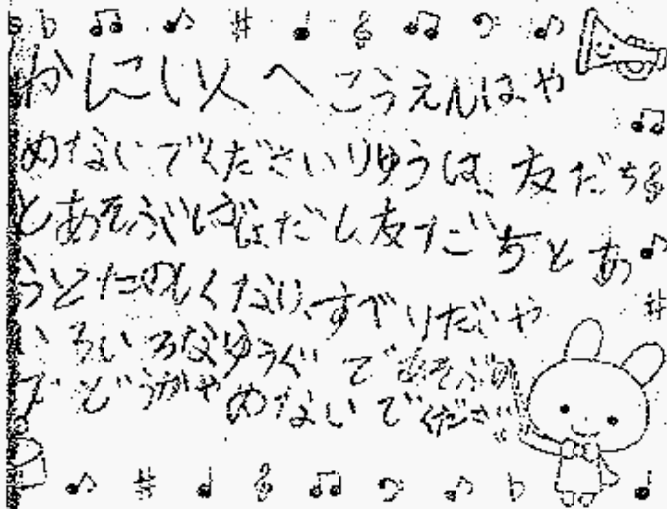 かんにい人へこうえんはや
めないでくださいりゆうは、友だち
とあそぶばしょだし友だちとあ
うとたのしくなり、すべりだいや
いろいろなゆうぐであそぶの
でどうかやめないでください